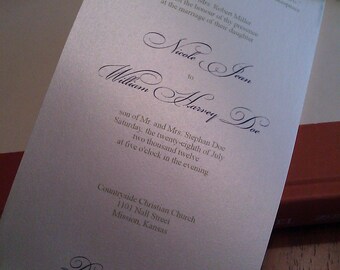 the marriage of their daughter
Nicole Jean
to
William Harvey Doe
son of Mr. and Mrs. Stephan Doe
Saturday, the twenty-eighth of July
two thousand twelve
at five o'clock in the evening
Countryside Christian Church
Nall Street
Mission, Kansas